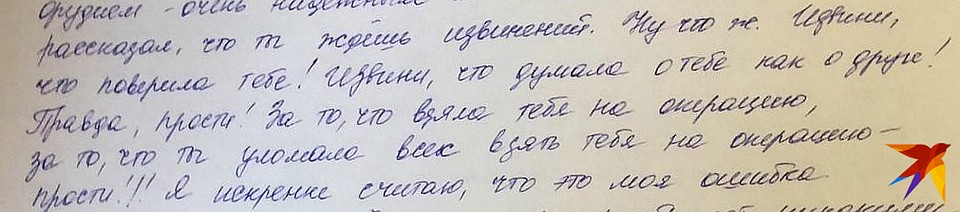 орудием - очень
рассказал, что ты ждёшь извинений. Ну что ж. Извини,
что поверила тебе! Извини, что думала о тебе как о друге!
Правда, прости! За то, что взяла тебя на операцию,
за то, что ты уломала всех взять тебя на операцию-
прости!!! Я искренне считаю, что это моя ошибка